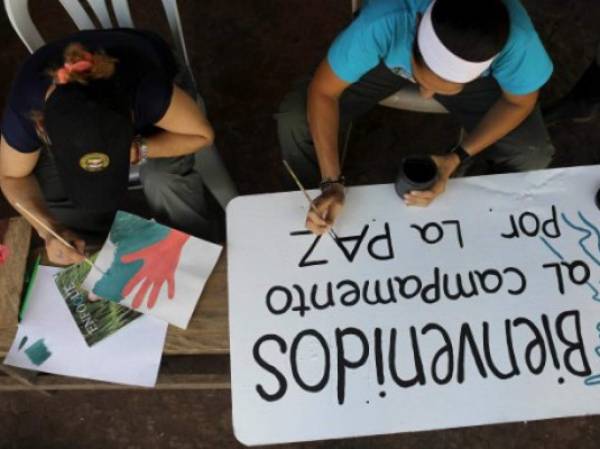 Bienvenidos
aL campamento
Por La PAZ
ENFOQUE